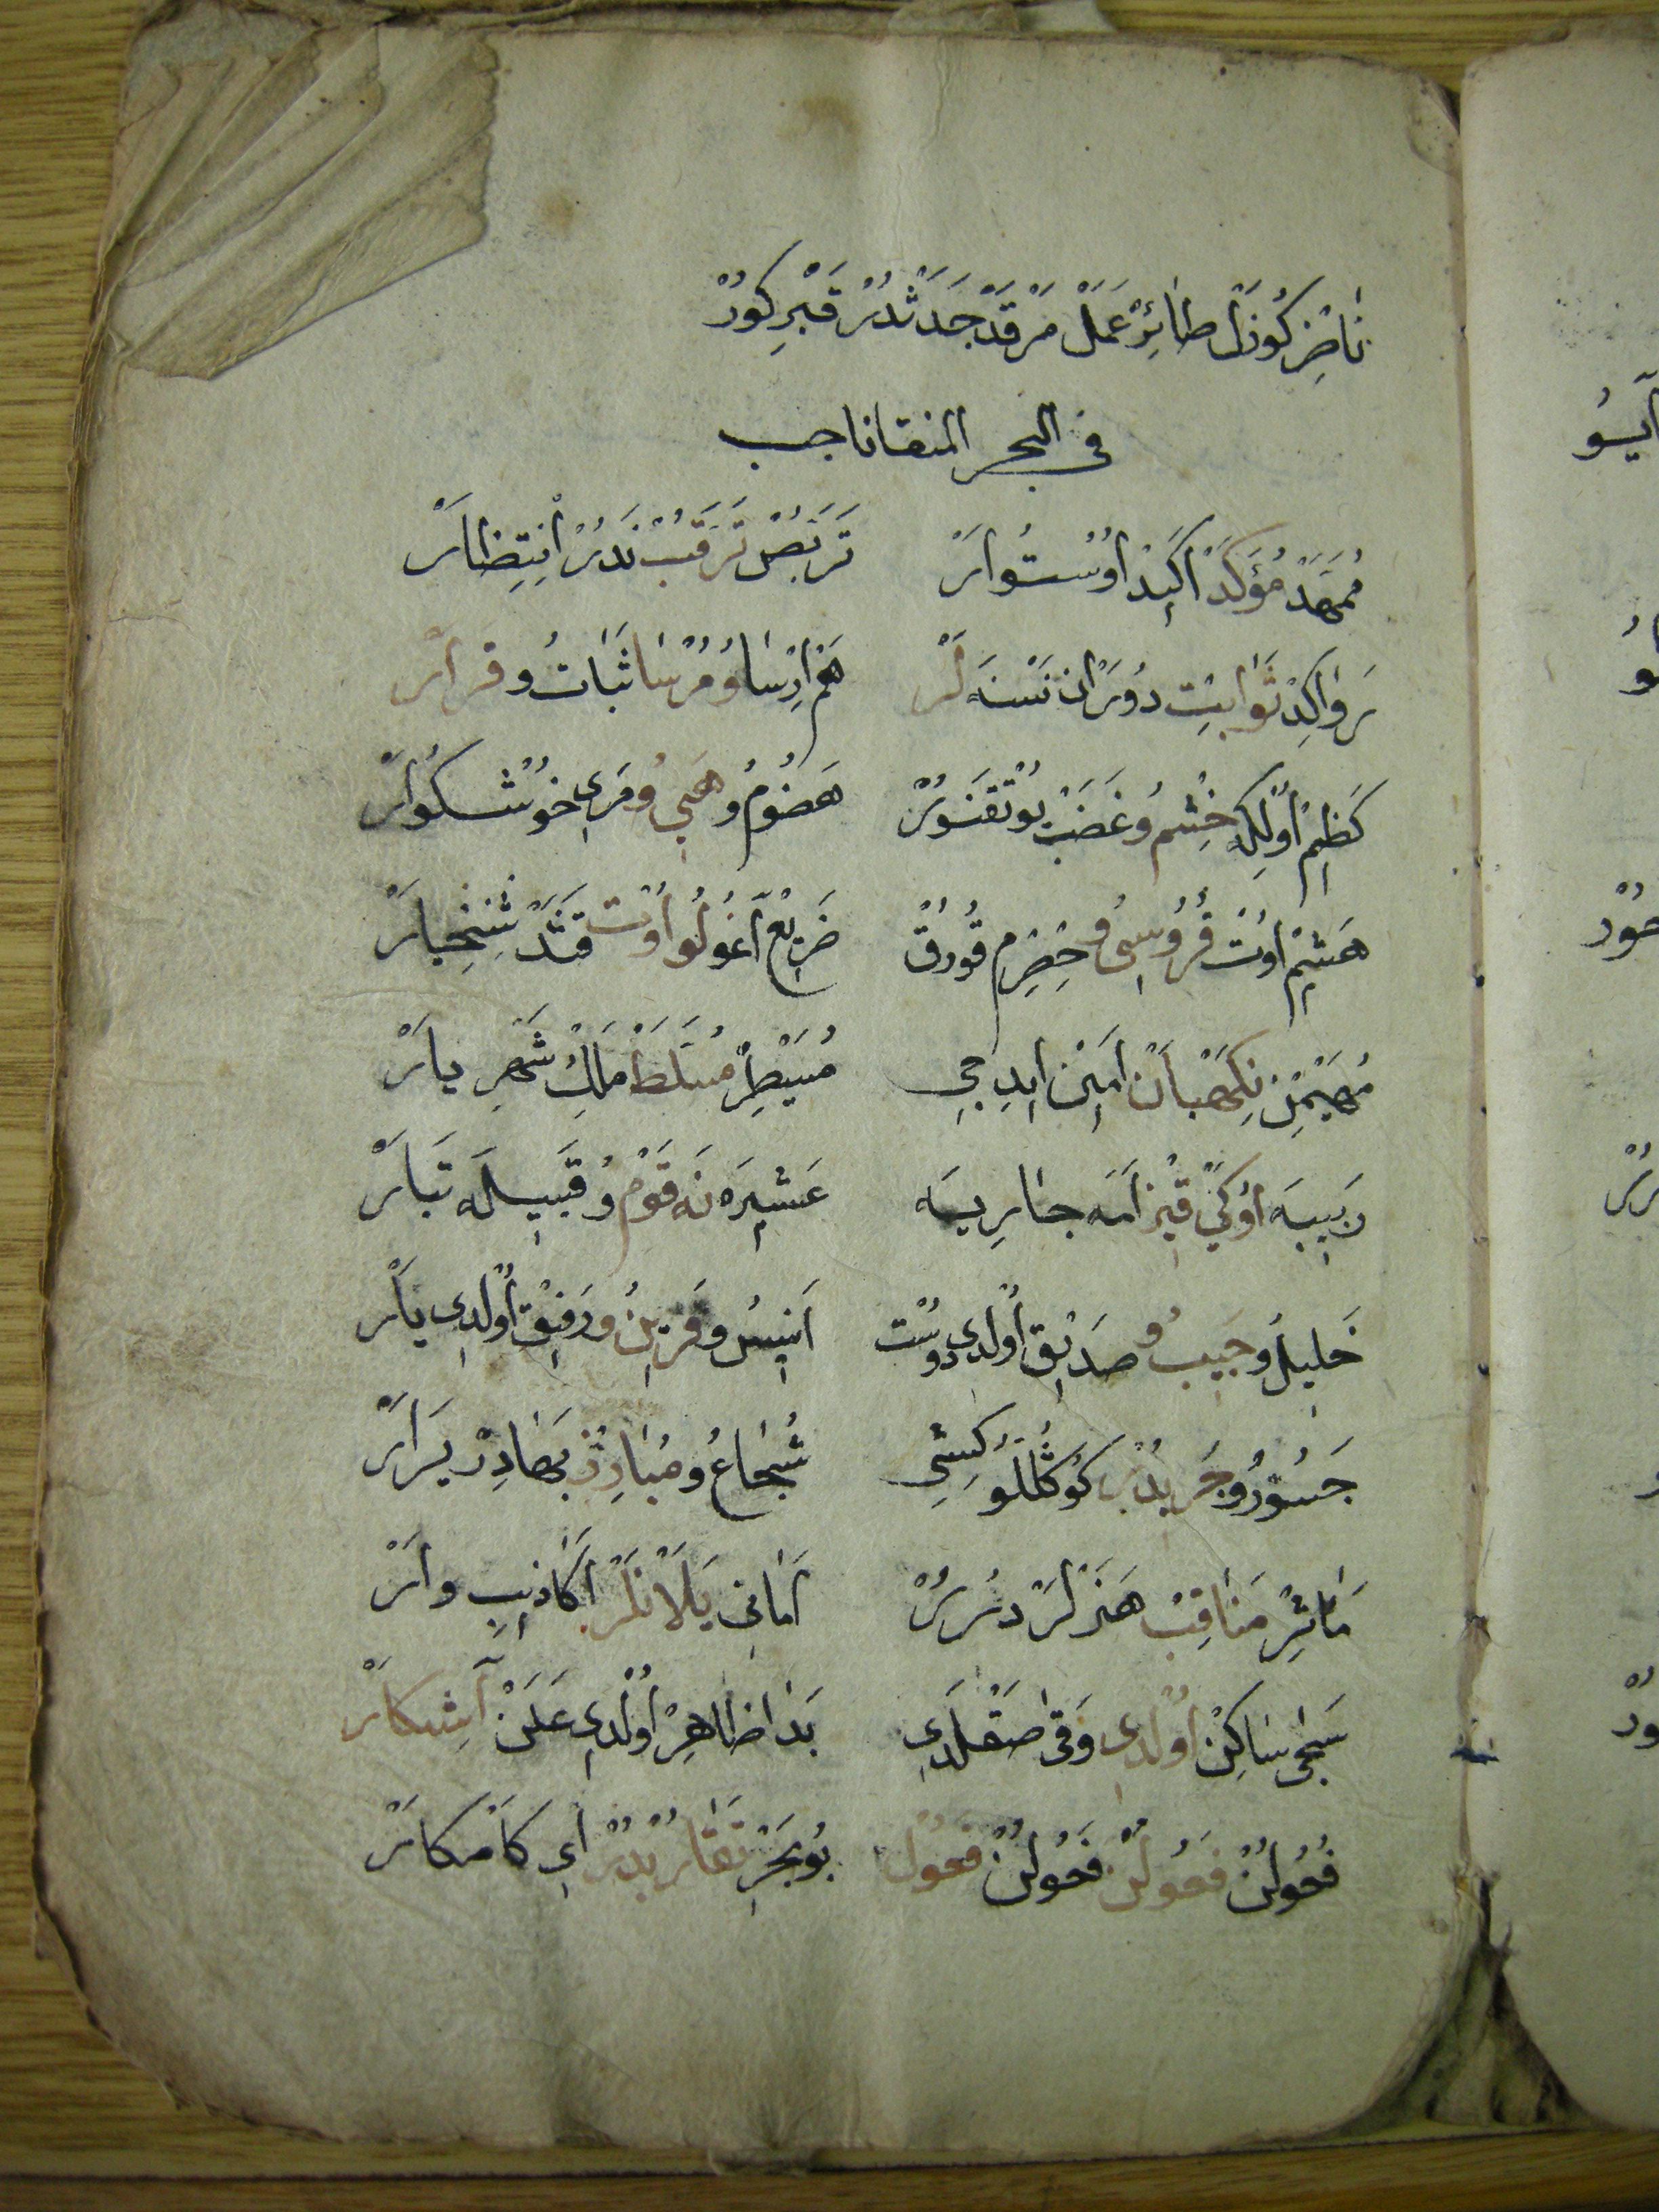 نَاضِرْ كُوزَلْ طَائِرْ عَمَلْ مَرْقَدْ جَدَثْدُرْ قَبْرِ كُورْ
فى البحر المتقاناجب
مُمَهَّدْ مُؤَكَّدْ اَكِيدْ اُوسْتُوَارْ تَرَبُّصْ تَرَقُّبْ نَدُرْ اِنْتِظَارْ
رَوَاكِدْ ثَوَابِتْ دُورَانْ نَسْنَهْ لَرْ هَمْ اِرْسَاوُ مُرْسَا ثَبَاتُ و قَرَارْ
كَظِيمْ اُولْكِهْ خِشْمُ وغَضَبْ يُوتْقَنُورْ هَضُومُ وهَنِي وُ مَرِي خُوشْكُوَارْ
هَشِيمْ اُوتْ قُرُوسِي وُ خِضْرِمْ قُورُقْ ضَرِيعْ آغُولُو اُوتْ قَتَدْ شِنْخِيَارْ
مُهَيْمِنْ نِكَهْبَانْ اَمِينْ اِيدِجِي مُسَيْطِرْ مُسَلَّطْ مَلِكْ شَهْرِيَارْ
رَبِيبَهْ اُوكَيْ قِيزْ اَمَهْ جَارِيَهْ عَشِيرَهْ نَهْ قَوْمُ وُ قَبِيلَهْ تَبَارْ
خَلِيلُ وحَبِيبُ وُ صَدِيقْ اُولْدِي دُوسْتْ اَنِيسُ وقَرِينُ ورَفِيقْ اُولْدِي يَارْ
جَسُورُ وجَرِيدُرْ كُوكُلْلُو كِشِي شُجَاعُ ومُبَارِزْ بَهَادِرْ يَرَارْ
مَاٰثِرْ مَنَاقِبْ هَنَرْلَرْ دُرُرْ اَمَانِى يَلَانْلَرْ اَكَاذِيبِ وَارْ
سَجٰى سَاكِنْ اُولْدِي وَقٰى صَقْلَدِي بَدَا ظَاهِرْ اُولْدِي عَلَنْ آشِكَارْ
فَعُولُنْ فَعُولُنْ فَعُولُنْ فَعُولْ بُو بَحْرِ تَقَارُبْدُرْ اَيْ كَامْكَارْ